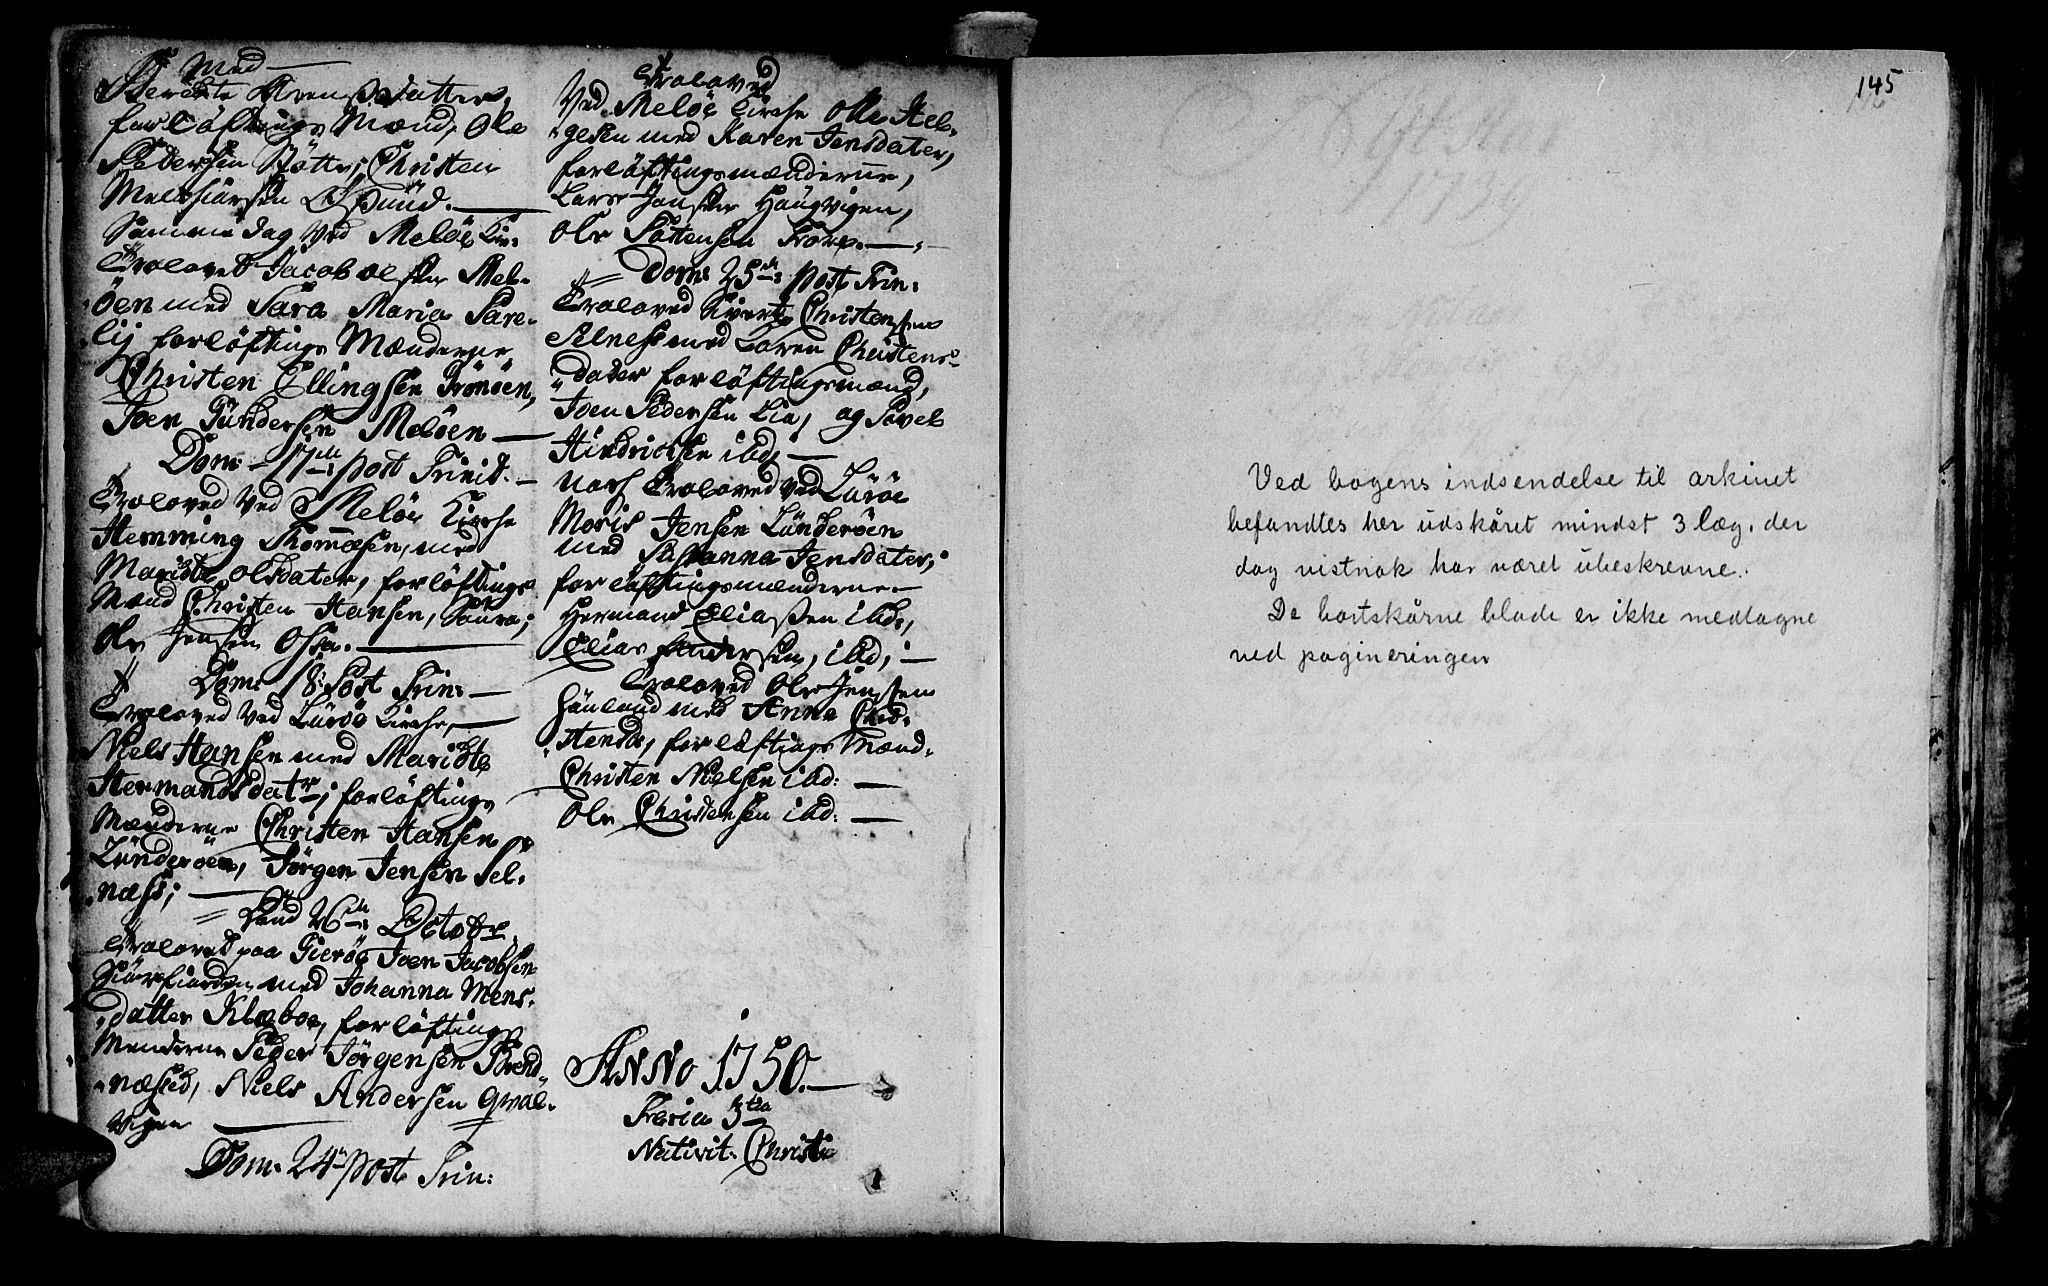 Med
Berethe Arensdatter,
forløftings Mænd, Ole
Pedersen Støtt, Christen
Melchiorsen Ø Sund.
Samme dag ved Meløe Kir:
Troloved Jacob Olsen Mel-
öen med Sara Maria Pare-
lij forløftings Mænderne
Christen Ellingsen Grönöen,
Joen Gündersen Meløen
Dom: 17de post Trinit.
Troloved ved Meløe Kirche
Hemming Thomæsen, med
Marithe Olsdater, forløftings
Mænd Christen Hansen, Saura;
Ole Jensen Ossa.
Dom: 18: Post Trin:
Troloved ved Lürøe Kirche,
Niels Hansen med Marithe
Hermandsdatr; forløftings
Mænderne Christen Hansen
Lünderøen, Jørgen Jensen Sel-
næss;
Dend 26de: Octobr
Troloved paa Gierøe Joen Jacobsen
Siørfiorden med Johanna Mons-
datter Klæboe, forløftings
Menderne Peder Jørgensen Brend-
næsed, Niels Andersen Qval-
vigen
Dom. 24de post Trin:
Troloved
Ved Meløe Kirche Olle Hel-
gesen med Karen Jensdater,
forløftingsmænderne,
Lars Jensen Haugvigen,
Ole Sörensen Forøe.
Dom: 25de: post Trin:
Troloved Sivert Christensen
Selness med Karen Christens-
dater forløftingsmænd,
Joen Pedersen Lia, og Povel
Hindrichsen ibd:
noch Troloved ved Lürøe
Moris Jensen Lünderøen
med Susanna Jensdater;
forløftingsmænderne
Hermand Eliassen ibd:,
Elias Andersen, ibd;
Troloved Ole Jenssen
Haüland med Anne Chri-
stensdr, forløftings Mænd
Christen Nielsen ibd:
Ole Christensen ibd:
Anno 1750.
Feria 3tia
Nativit. Christi
145
Ved bogens indsendelse til arkivet
befandtes her udskåret mindst 3 læg, der
dog vistnok har været ubeskrevne.
De bortskårne blade er ikke medtagne
ved pagineringen